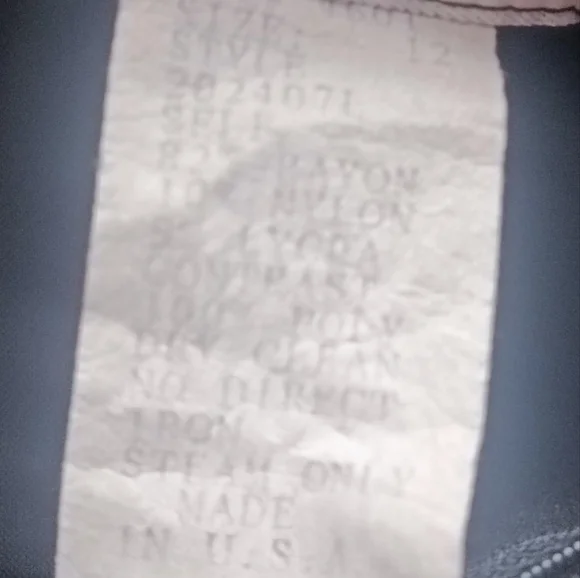 SIZE: 12
STYLE
SELF
RAYON
NYLON
LYCRA
CONTRAST
100% POLY
DRY CLEAN
NO DIRECT
IRON
STEAM ONLY
MADE
IN U.S.A